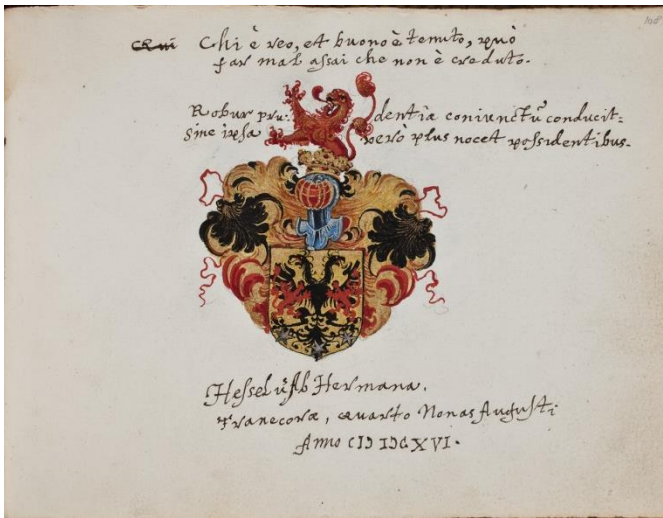 108
Chi è reo, et buono è tenuto, può
far mal assai che non è creduto.
Robur pru: dentiæ coniunctũ conducit:
sine ipsa verò plus nocet possidentibus.
Hessel ab Hermana.
Franecoræ, quarto Nonas Augusti
Anno CIↃ IↃC XVI.